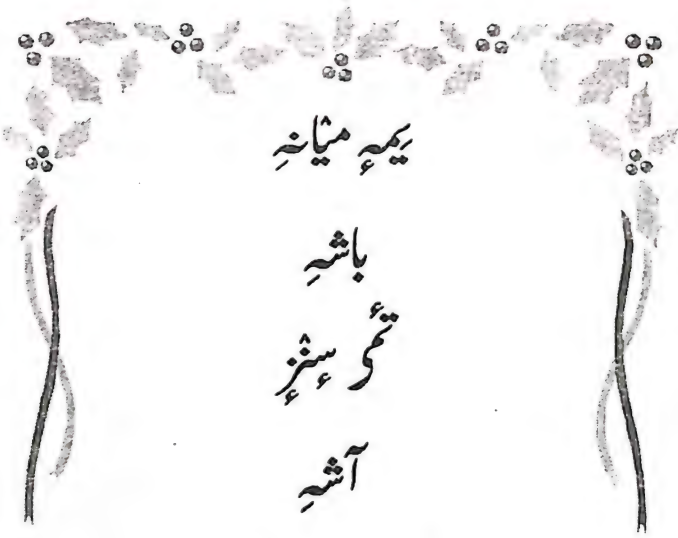 یِمہٕ میٛانہِ
باشہِ
تٔمۍ سٕنٛزٕ
آشہِ